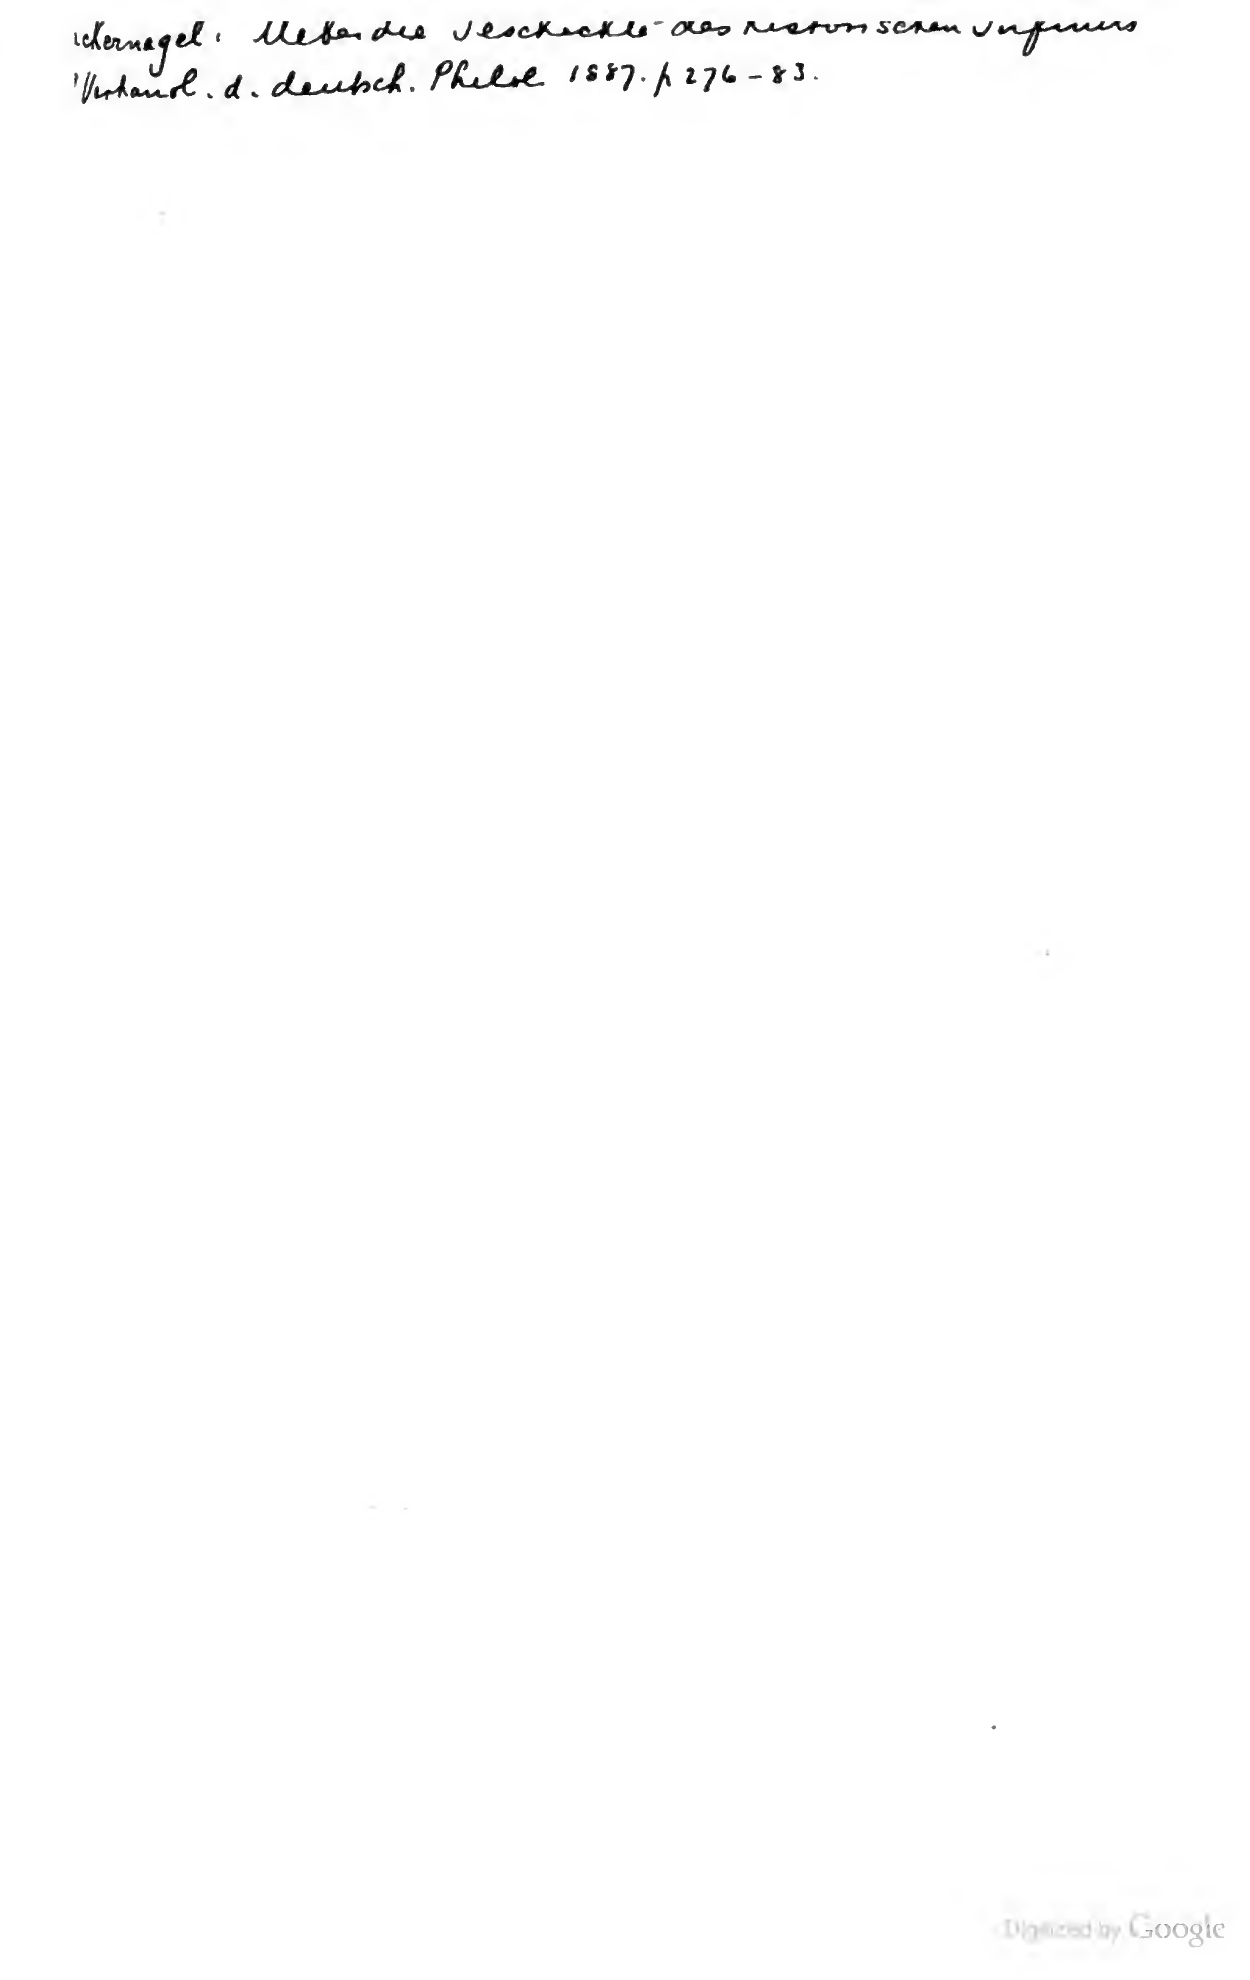 ckernagel: Ueber die Geschichte des historischen Infinitivs
Verhandl. d. deutsch. Philol 1887. p 276-83.
Digitized by Google